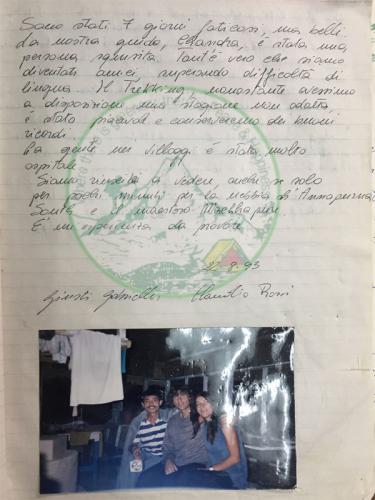 Sono stati 7 giorni faticosi, ma belli.
La nostra guida, Chandra, è stata una
persona squisita. Tant'è vero che siamo
diventati amici, superando difficoltà di
lingua. Il Trekking, nonostante avessimo
a disposizione una stagione non adatta
è stato piacevole e conserveremo dei buoni
ricordi.
La gente nei villaggi è stata molto
ospitale.
Siamo riusciti a vedere, anche se solo
per pochi minuti per la nebbia l'Annapurna
South e il maestoso Machhapure
E' un'esperienza da provare
22-8-93
Claudio Rossi